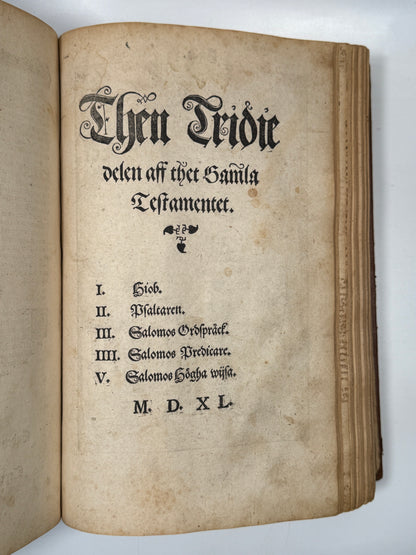 Then Tridie
delen aff thet Gam̃la
Testamentet.
I. Hiob.
II. Psaltaren.
III. Salomos Ordspräck.
IIII. Salomos Predicare.
V. Salomos Högha wijsa.
M. D. XL.